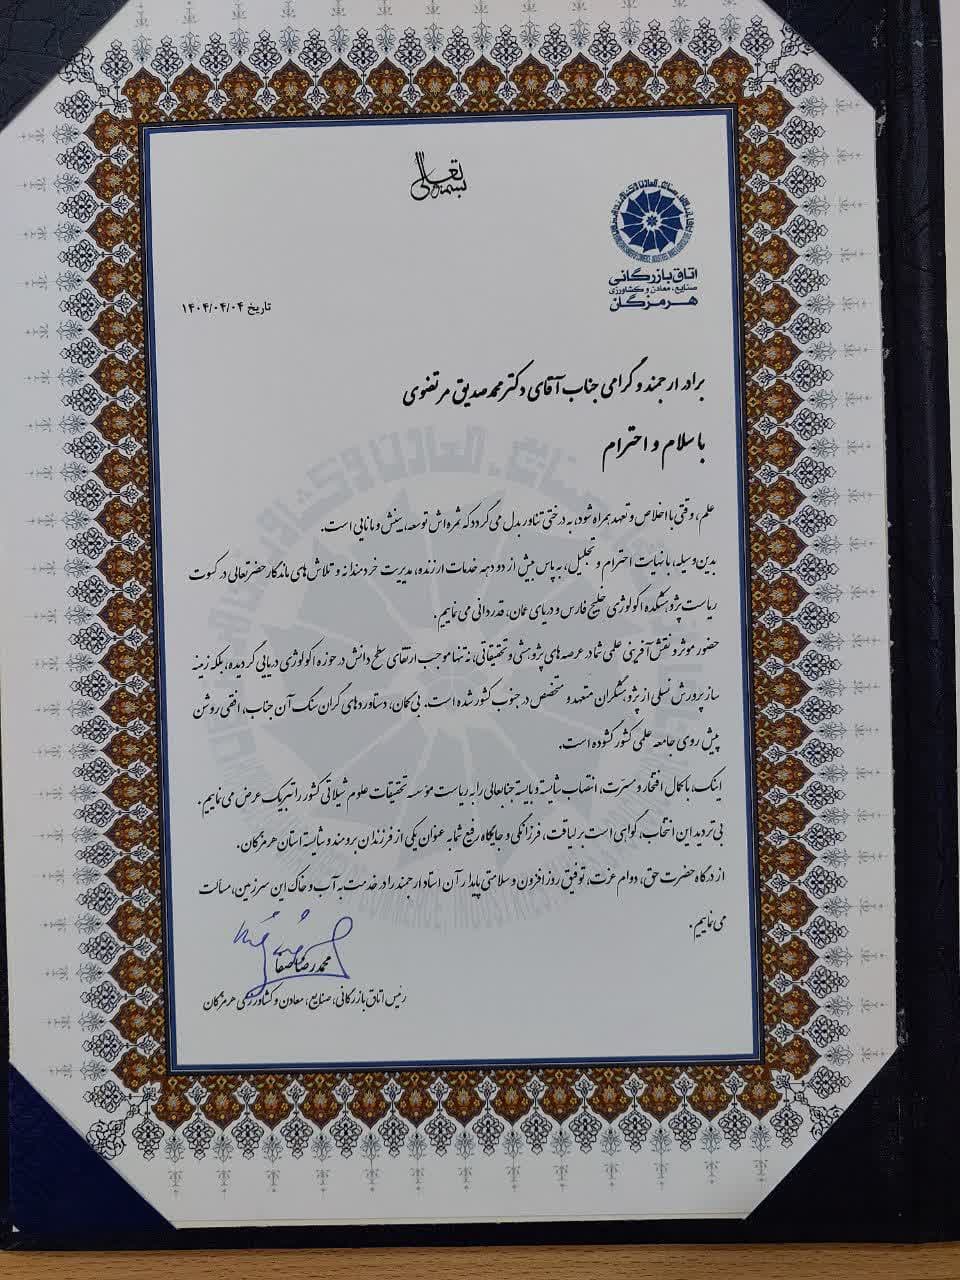 بسمه تعالی
اتاق بازرگانی
صنایع، معادن و کشاورزی
هرمزگان
تاریخ ۱۴۰۴/۰۴/۰۴
برادر ارجمند و گرامی جناب آقای دکتر محمد صدیق مرتضوی
با سلام و احترام
علم، وقتی با اخلاص و تعهد همراه شود، به درختی تناور بدل می گردد که ثمره اش توسعه، بینش و مانایی است.
بدین وسیله، با نهایت احترام و تجلیل، به پاس بیش از دو دهه خدمات ارزنده، مدیریت خردمندانه و تلاش های ماندگار حضرتعالی در کسوت
ریاست پژوهشکده اکولوژی خلیج فارس و دریای عمان، قدردانی می نماییم.
حضور موثر و نقش آفرینی علمی شما در عرصه های پژوهشی و تحقیقاتی، نه تنها موجب ارتقای سطح دانش در حوزه اکولوژی دریایی گردیده، بلکه زمینه
ساز پرورش نسلی از پژوهشگران متعهد و متخصص در جنوب کشور شده است. بی گمان، دستاوردهای گران سنگ آن جناب، افقی روشن
پیش روی جامعه علمی کشور گشوده است.
اینک، با کمال افتخار و مسرّت، انتصاب شایسته و بایسته جنابعالی را به ریاست مؤسسه تحقیقات علوم شیلاتی کشور را تبریک عرض می نماییم.
بی تردید این انتخاب، گواهی است بر لیاقت، فرزانگی و جایگاه رفیع شما به عنوان یکی از فرزندان برومند و شایسته استان هرمزگان.
از درگاه حضرت حق، دوام عزت، توفیق روز افزون و سلامتی پایدار آن استاد ارجمند را در خدمت به آب و خاک این سرزمین، مسألت
می نماییم.
محمدرضا صفا
رئیس اتاق بازرگانی، صنایع، معادن و کشاورزی هرمزگان